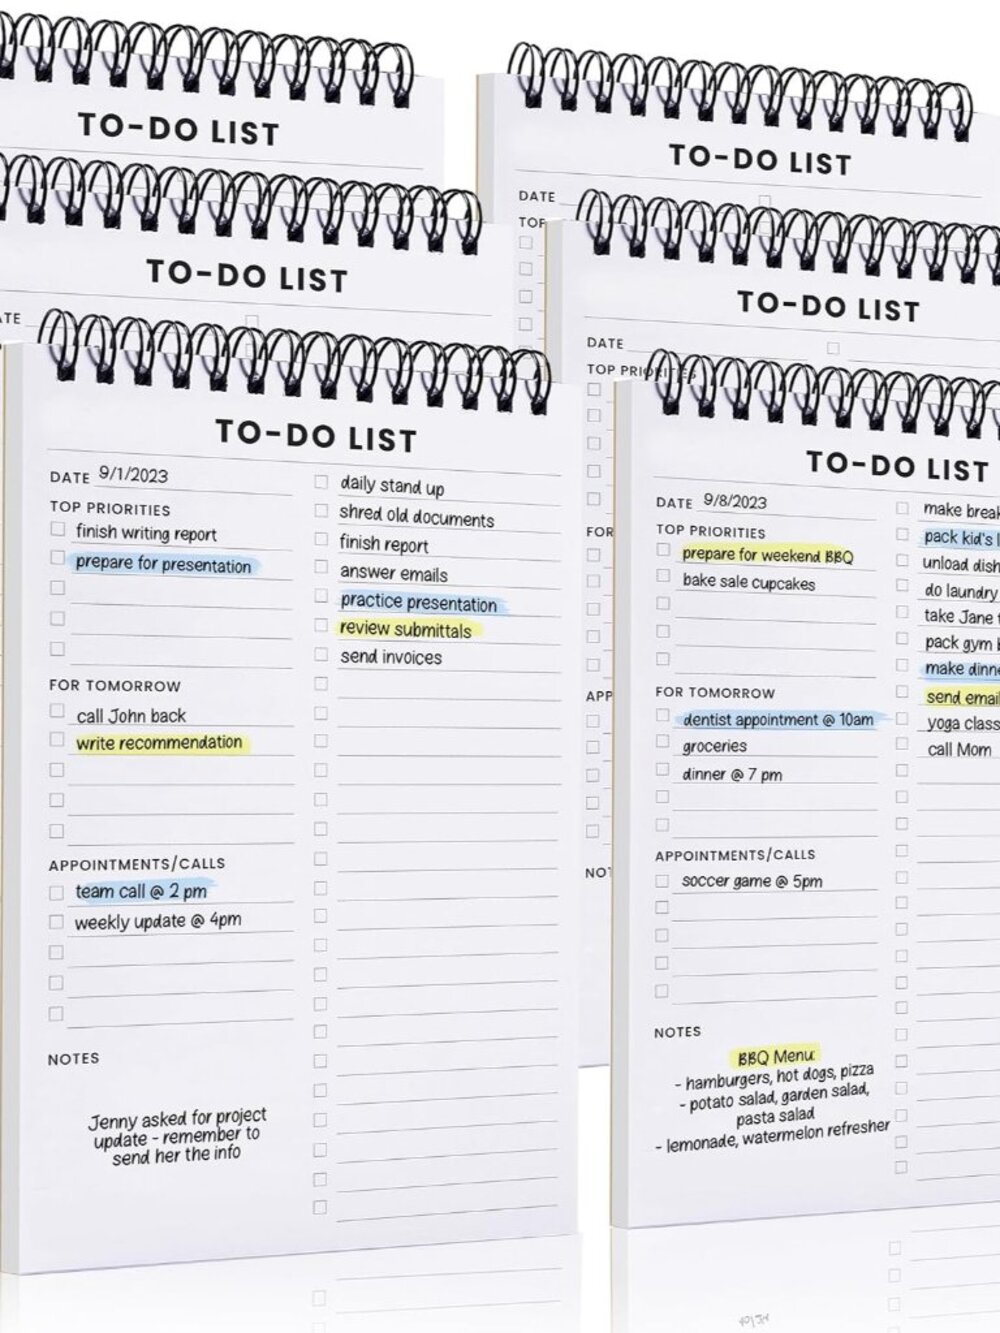 TO-DO LIST
TO-DO LIST
DATE
TO-DO LIST
TO-DO LIST
DATE
TOP PRIORITIES
FOR
APP
TO-DO LIST
DATE 9/1/2023
TOP PRIORITIES
finish writing report
prepare for presentation
FOR TOMORROW
call John back
write recommendation
APPOINTMENTS/CALLS
team call @ 2 pm
weekly update @ 4pm
NOTES
Jenny asked for project
update - remember to
send her the info
daily stand up
shred old documents
finish report
answer emails
practice presentation
review submittals
send invoices
TO-DO LIST
DATE 9/8/2023
TOP PRIORITIES
prepare for weekend BBQ
bake sale cupcakes
FOR TOMORROW
dentist appointment @ 10am
groceries
dinner @ 7 pm
APPOINTMENTS/CALLS
soccer game @ 5pm
NOTES
BBQ Menu:
- hamburgers, hot dogs, pizza
- potato salad, garden salad,
pasta salad
- lemonade, watermelon refresher
make break
pack kid's
unload dish
do laundry
take Jane
pack gym
make dinne
send email
yoga class
call Mom